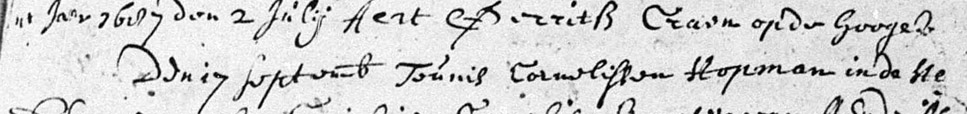 nt Jaer 1687 den 2 Julij Aert Gerritß Craen op de Hooge
Den 17 Septemb Teunis Cornelissen Hopman in de